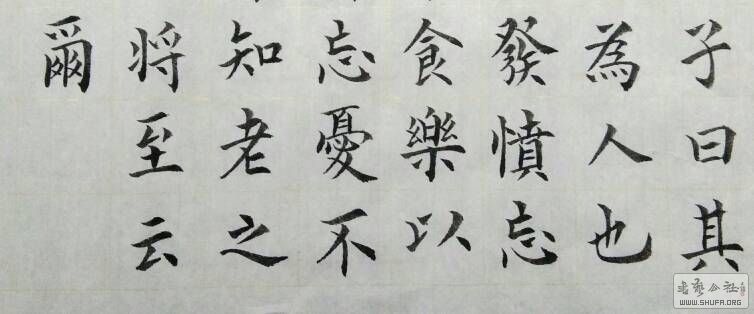 子曰其
為人也
發憤忘
食樂以
忘憂不
知老之
将至云
爾
WWW.SHUFA.ORG